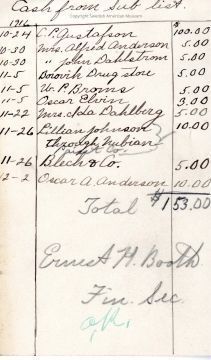 Copyright Swedish American Museum
Cash from Sub list.
1916
10-24 C.P. Gustafson $100.00
10-30 Mrs. Alfred Anderson 5.00
10-30 " John Dahlstrom 5.00
11-5 Drug store 5.00
11-5 W.P. Broms 5.00
11-5 Oscar Elvin 3.00
11-22 Mrs. Ida Dahlberg 5.00
11-26 Lillian Johnson 10.00
through Nubian
Co.
11-26 Blech & Co. 5.00
12-2 Oscar A. Anderson 10.00
Total $153.00
Ernest H. Booth
Fin. Sec.
O.K.